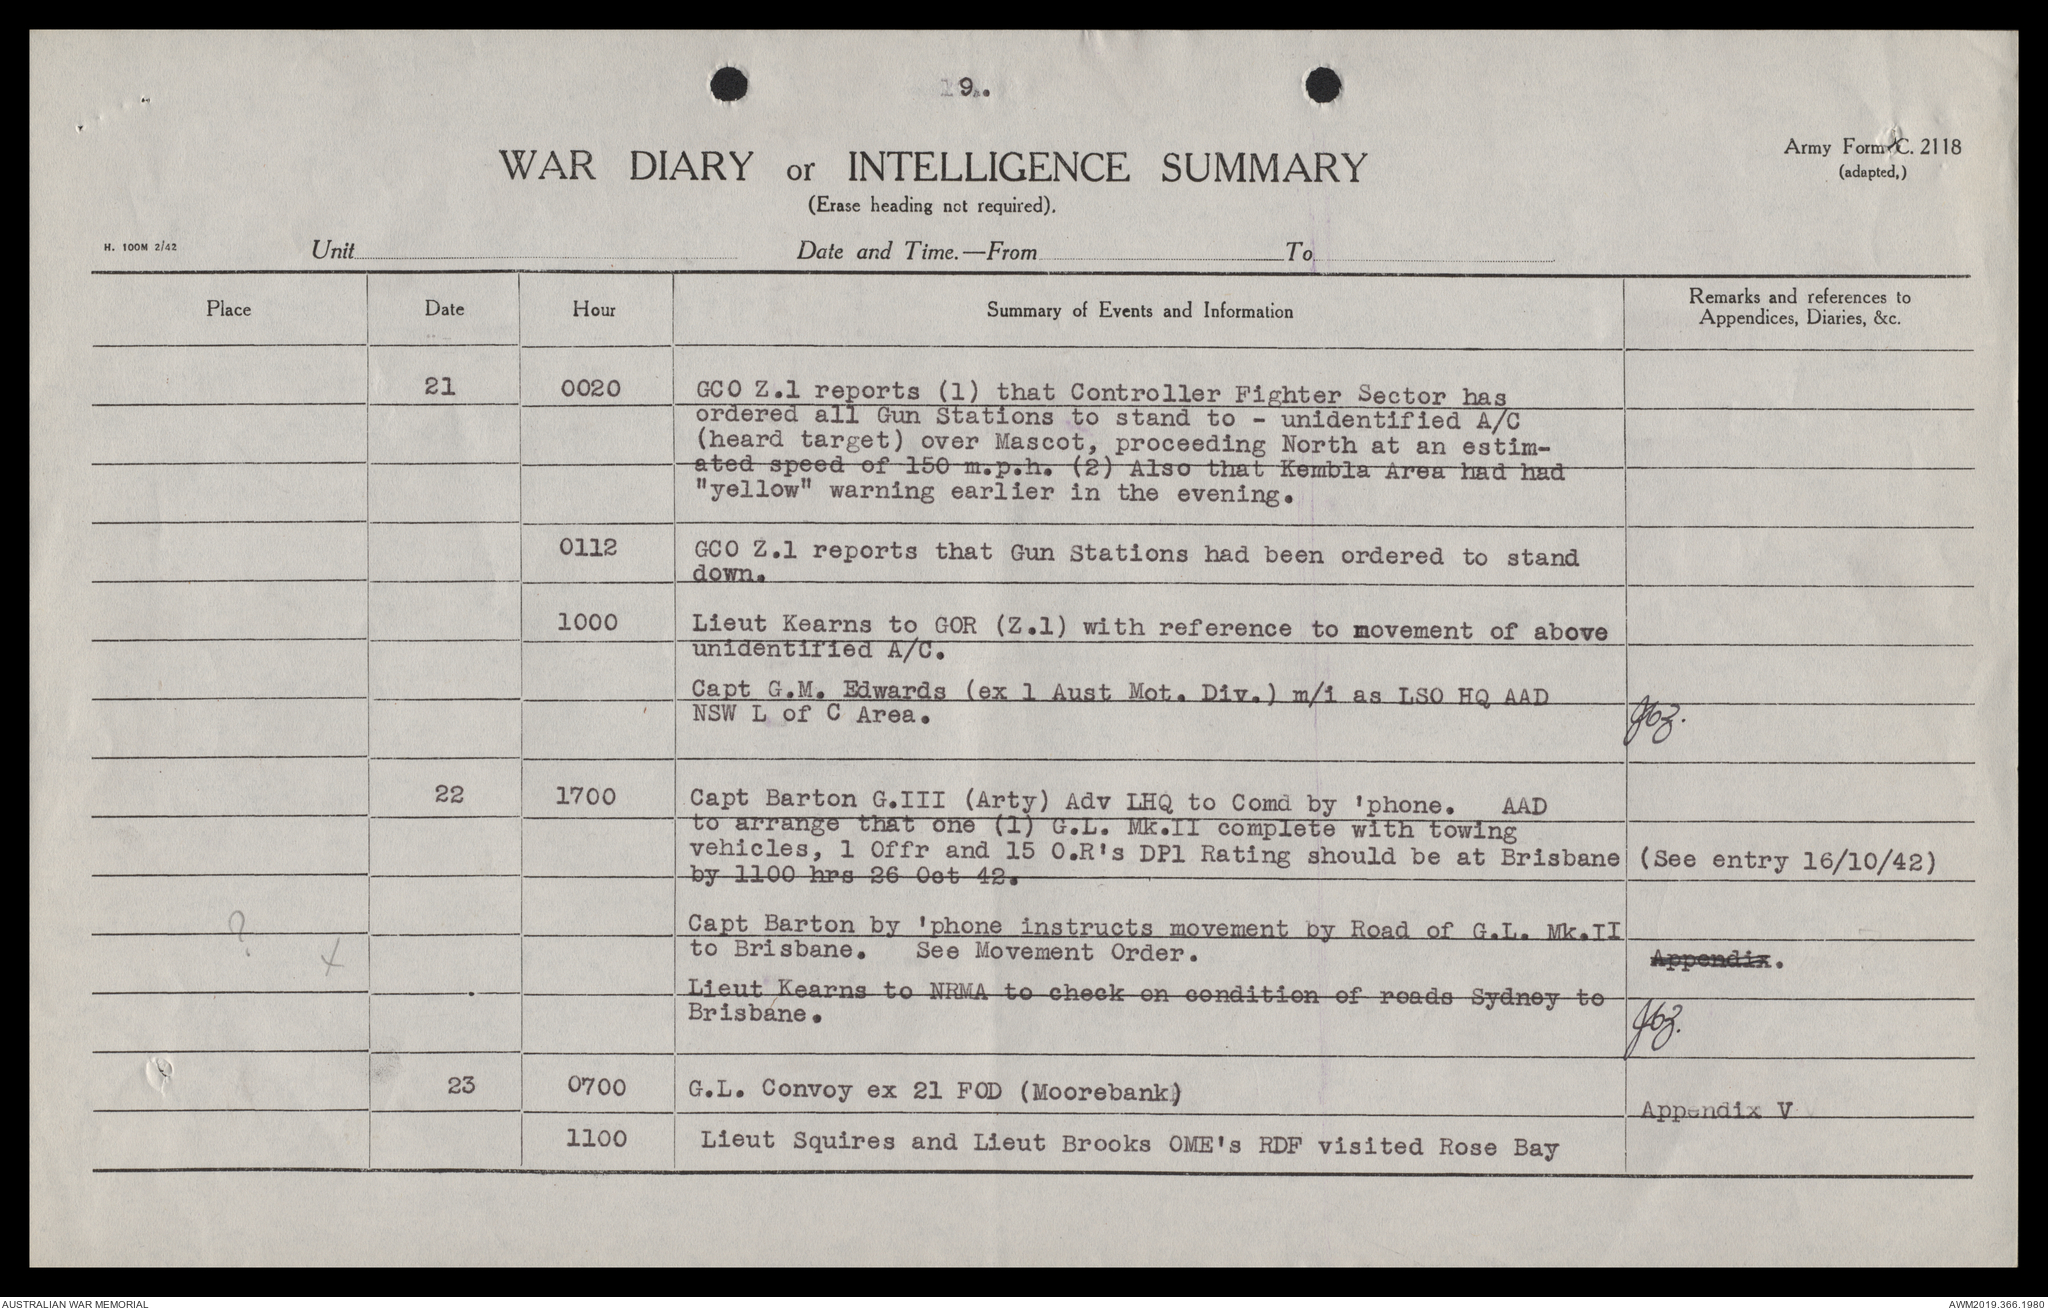 9.
WAR DIARY or INTELLIGENCE SUMMARY
Army Form C. 2118
(adapted,)
(Erase heading not required).
H. 100M 2/42
Unit
Date and Time.—From
To
Place
Date
Hour
Summary of Events and Information
Remarks and references to
Appendices, Diaries, &c.
21 0020 GCO Z.1 reports (1) that Controller Fighter Sector has
ordered all Gun Stations to stand to - unidentified A/C
(heard target) over Mascot, proceeding North at an estim-
ated speed of 150 m.p.h. (2) Also that Kembla Area had had
"yellow" warning earlier in the evening.
0112 GCO Z.1 reports that Gun Stations had been ordered to stand
down.
1000 Lieut Kearns to GOR (Z.1) with reference to movement of above
unidentified A/C.
Capt G.M. Edwards (ex 1 Aust Mot. Div.) m/i as LSO HQ AAD
NSW L of C Area.
22 1700 Capt Barton G.III (Arty) Adv LHQ to Comd by 'phone. AAD
to arrange that one (1) G.L. Mk.II complete with towing
vehicles, 1 Offr and 15 O.R's DP1 Rating should be at Brisbane (See entry 16/10/42)
by 1100 hrs 26 Oct 42.
?
Capt Barton by 'phone instructs movement by Road of G.L. Mk.II
x
to Brisbane. See Movement Order. Appendix.
Lieut Kearns to NRMA to check on condition of roads Sydney to
Brisbane.
23 0700 G.L. Convoy ex 21 FOD (Moorebank)
Appendix V
1100 Lieut Squires and Lieut Brooks OME's RDF visited Rose Bay
AUSTRALIAN WAR MEMORIAL
AWM2019.366.1980